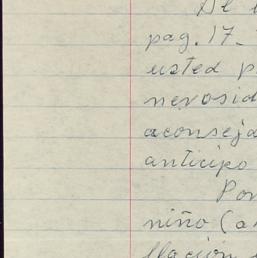 Al
pag. 17-
usted p
nevosid
aconseja
anticipo
Por
niño (a
llación